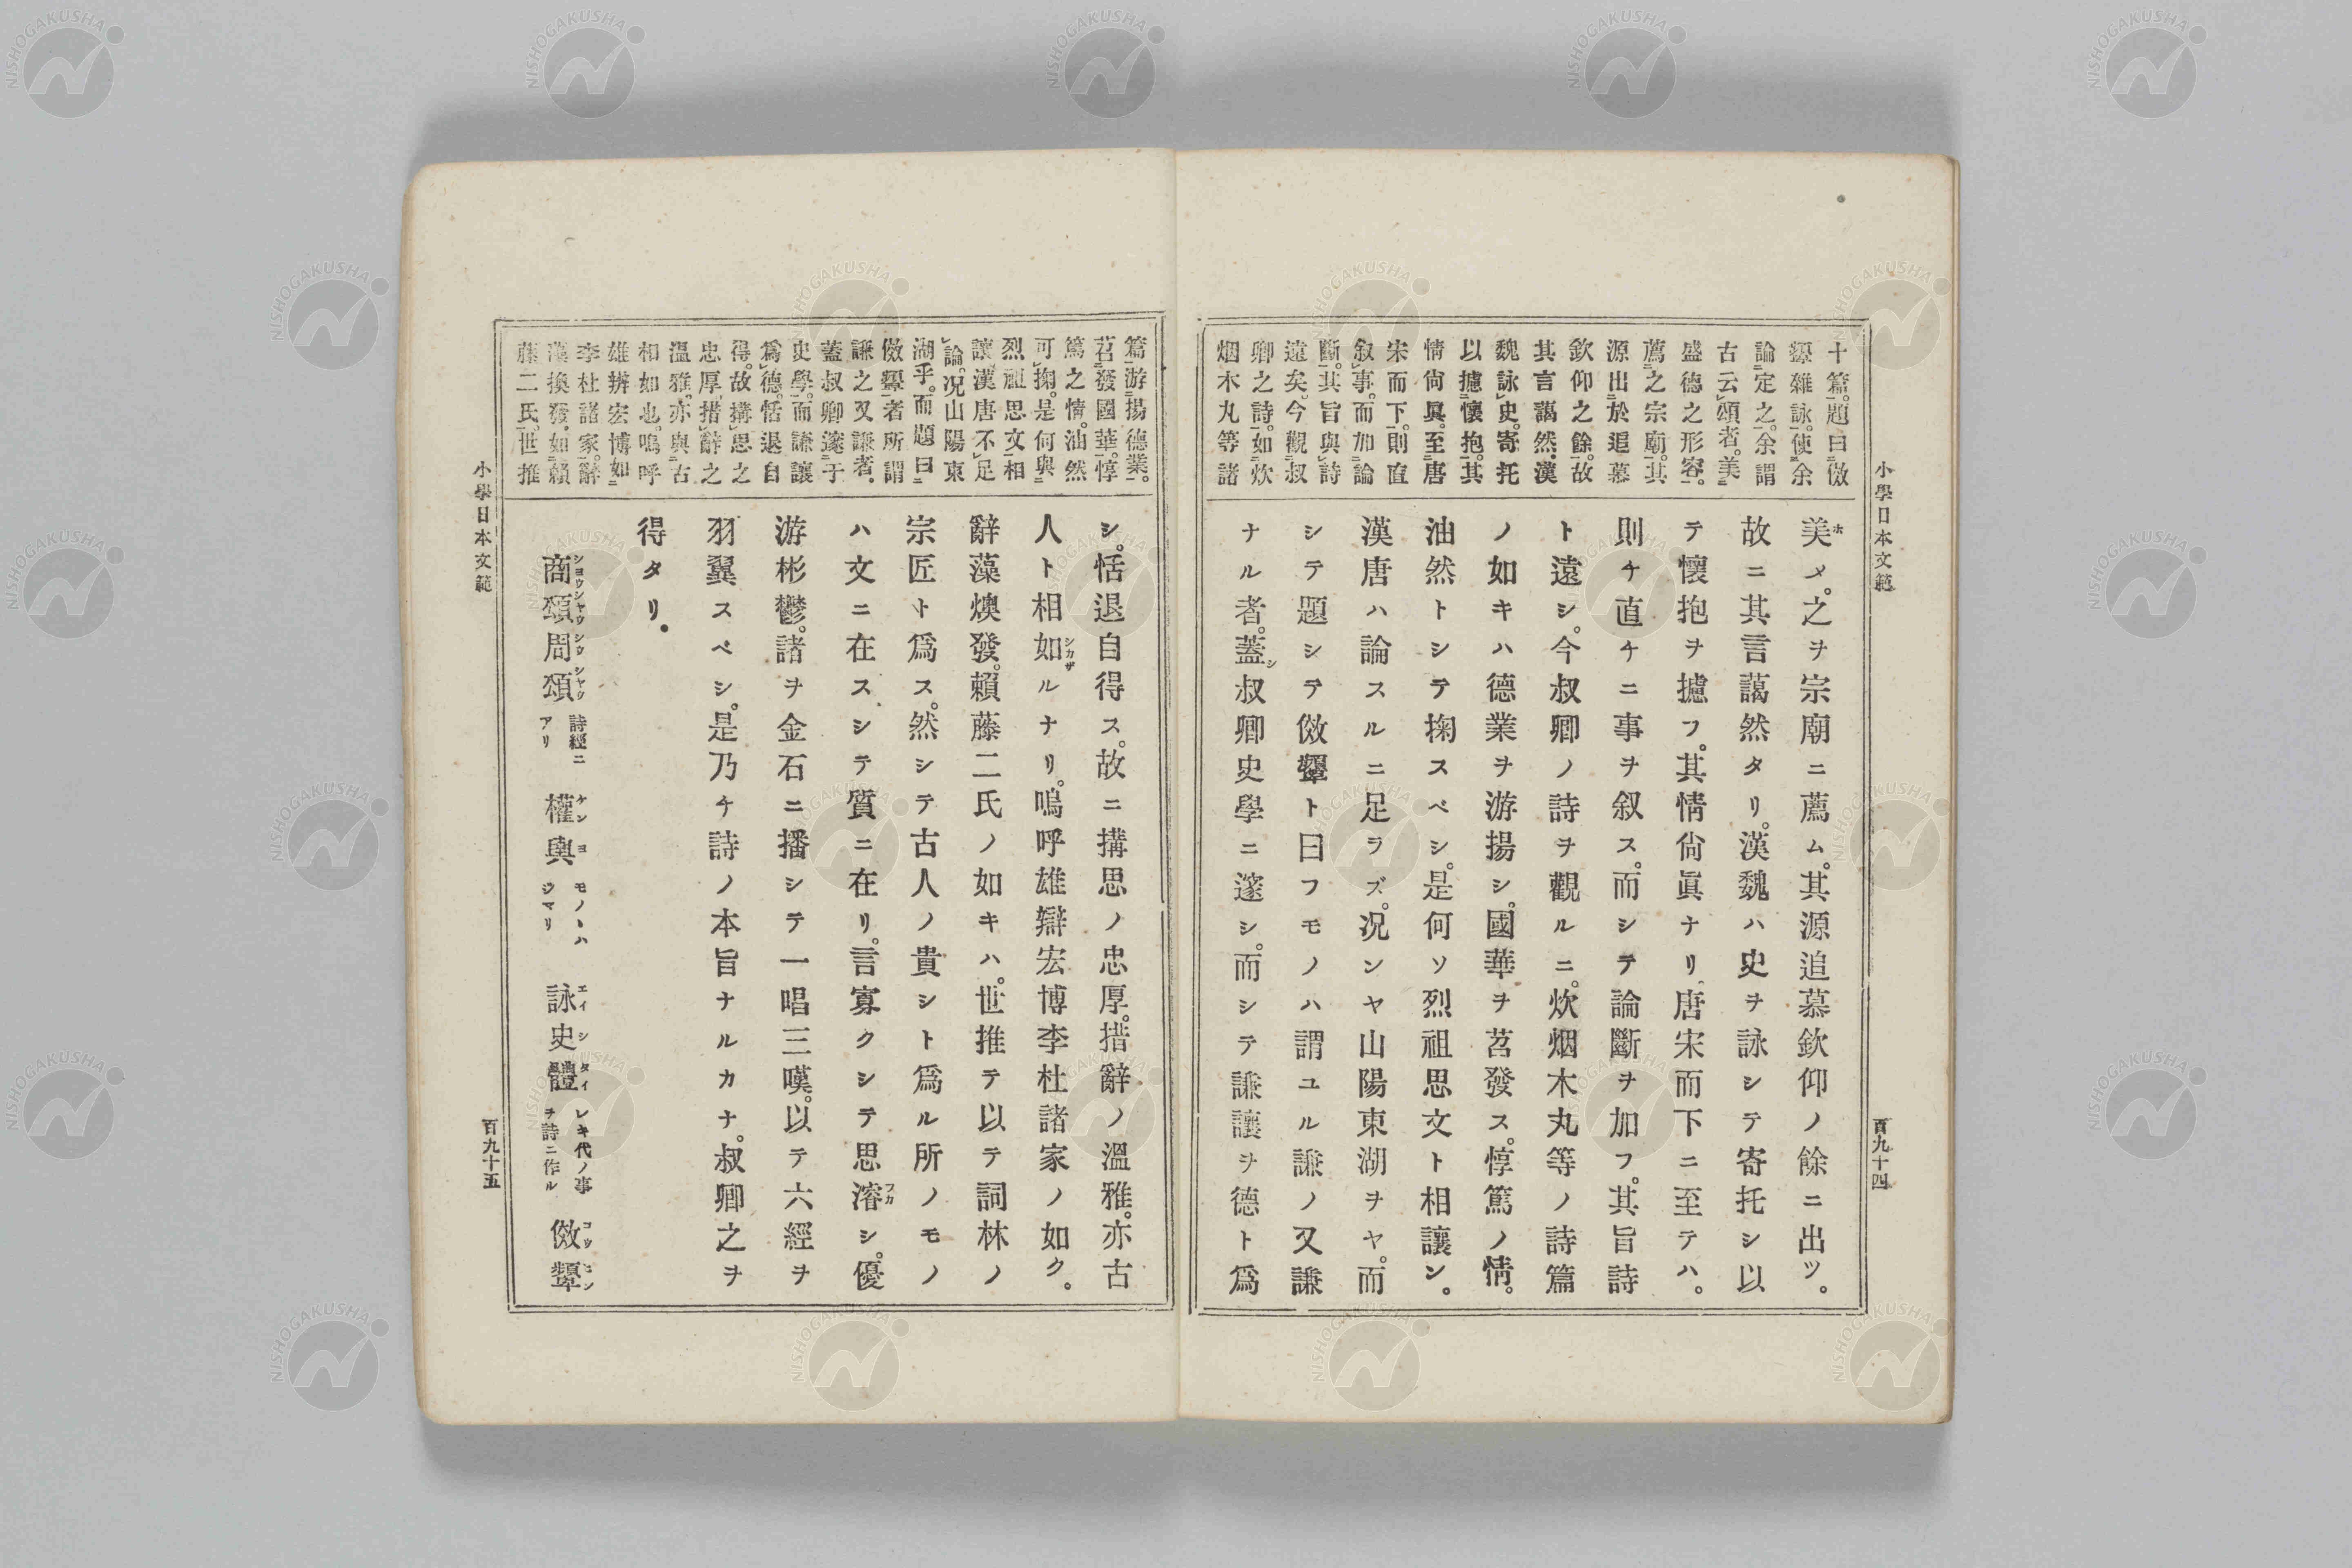 小學日本文範
百九十四
十篇。題曰倣
顰雜詠。使余
論定之。余謂
古云頌者。美
盛德之形容。
薦之宗廟。其
源出於追慕
欽仰之餘。故
其言藹然。漢
魏詠史。寄托
以攄懷抱。其
情尙眞。至唐
宋而下。則直
叙事。而加論
斷。其旨與詩
遠矣。今觀叔
卿之詩。如炊
烟木丸等諸
美メ。之ヲ宗廟ニ薦ム。其源追慕欽仰ノ餘ニ出ツ。
故ニ其言藹然タリ。漢魏ハ史ヲ詠シテ寄托シ以
テ懷抱ヲ攄フ。其情尙眞ナリ、唐宋而下ニ至テハ。
則チ直チニ事ヲ叙ス。而シテ論斷ヲ加フ。其旨詩
ト遠シ。今叔卿ノ詩ヲ觀ルニ。炊烟木丸等ノ詩篇
ノ如キハ德業ヲ游揚シ。國華ヲ苕發ス。惇篤ノ情。
油然トシテ掬スベシ。是何ソ烈祖思文ト相讓ン。
漢唐ハ論スルニ足ラズ。况ンヤ山陽東湖ヲヤ。而
シテ題シテ倣顰ト曰フモノハ謂ユル謙ノ又謙
ナル者。蓋シ叔卿史學ニ邃シ。而シテ謙讓ヲ德ト爲
篇。游揚德業。
苕發國華。惇
篤之情。油然
可掬。是何與
烈祖思文相
讓。漢唐不足
論。况山陽東
湖乎。而題曰
倣顰者所謂
謙之又謙者。
蓋叔卿邃于
史學。而謙讓
爲德。恬退自
得。故搆思之
忠厚。措辭之
溫雅。亦與古
相如也。嗚呼
雄辨宏博如
李杜諸家。辭
漢換發。如賴
藤二氏。世推
シ。恬退自得ス。故ニ搆思ノ忠厚。措辭ノ溫雅。亦古
人ト相如シカザルナリ。嗚呼雄辯宏博李杜諸家ノ如ク。
辭藻燠發。賴藤二氏ノ如キハ。世推テ以テ詞林ノ
宗匠ト爲ス。然シテ古人ノ貴シト爲ル所ノモノ
ハ文ニ在スシテ質ニ在リ。言寡クシテ思溶フカシ。優
游彬鬱。諸ヲ金石ニ播シテ一唱三嘆。以テ六經ヲ
羽翼スベシ。是乃チ詩ノ本旨ナルカナ。叔卿之ヲ
得タリ。
商頌周頌 詩經ニアリ 權輿 モノヽハジマリ 詠史體 レキ代ノ事ヲ詩ニ作ル 倣顰
小學日本文範
百九十五